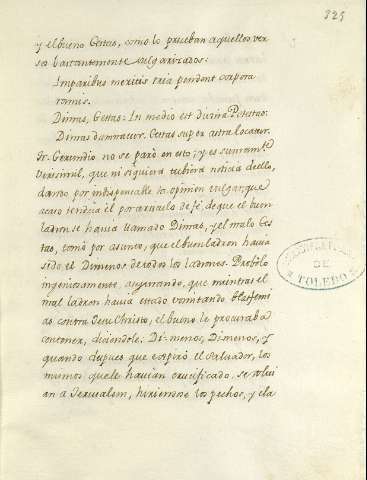 325
y el bueno Gestas, como lo prueban aquellos ver
sos bastantemente vulgarizados:
Imparibus meritis tria pendent corpora
ramis.
Dimas, Gestas: In medio est divina Potestas:
Dimas damnatur. Gestas super astra locatur.
Fr. Gerundio no se paró en esto; y es sumamte
verisimil, que ni siquiera tubiera noticia de ello,
dando por indispensable la opinion vulgar, que
acaso tendria el por articulo de fé, de que el buen
ladron se havia llamado Dimas, y el malo Ges
tas, tomó por asunto, que el buen ladron havia
sido el Dimenos de todos los ladrones. Probólo
ingeniosamente, suponiendo, que mientras el
mal ladron havia estado vomitando blasfemi
as contra Jesu Christo, el bueno le procuraba
contener, diciendole: Di-menos, Di menos, y
quando despues que espiró el Salvador, los
mismos que le havian crucificado, se volvi
an a Jerusalem, hiriendose los pechos, y ela
DE
TOLEDO